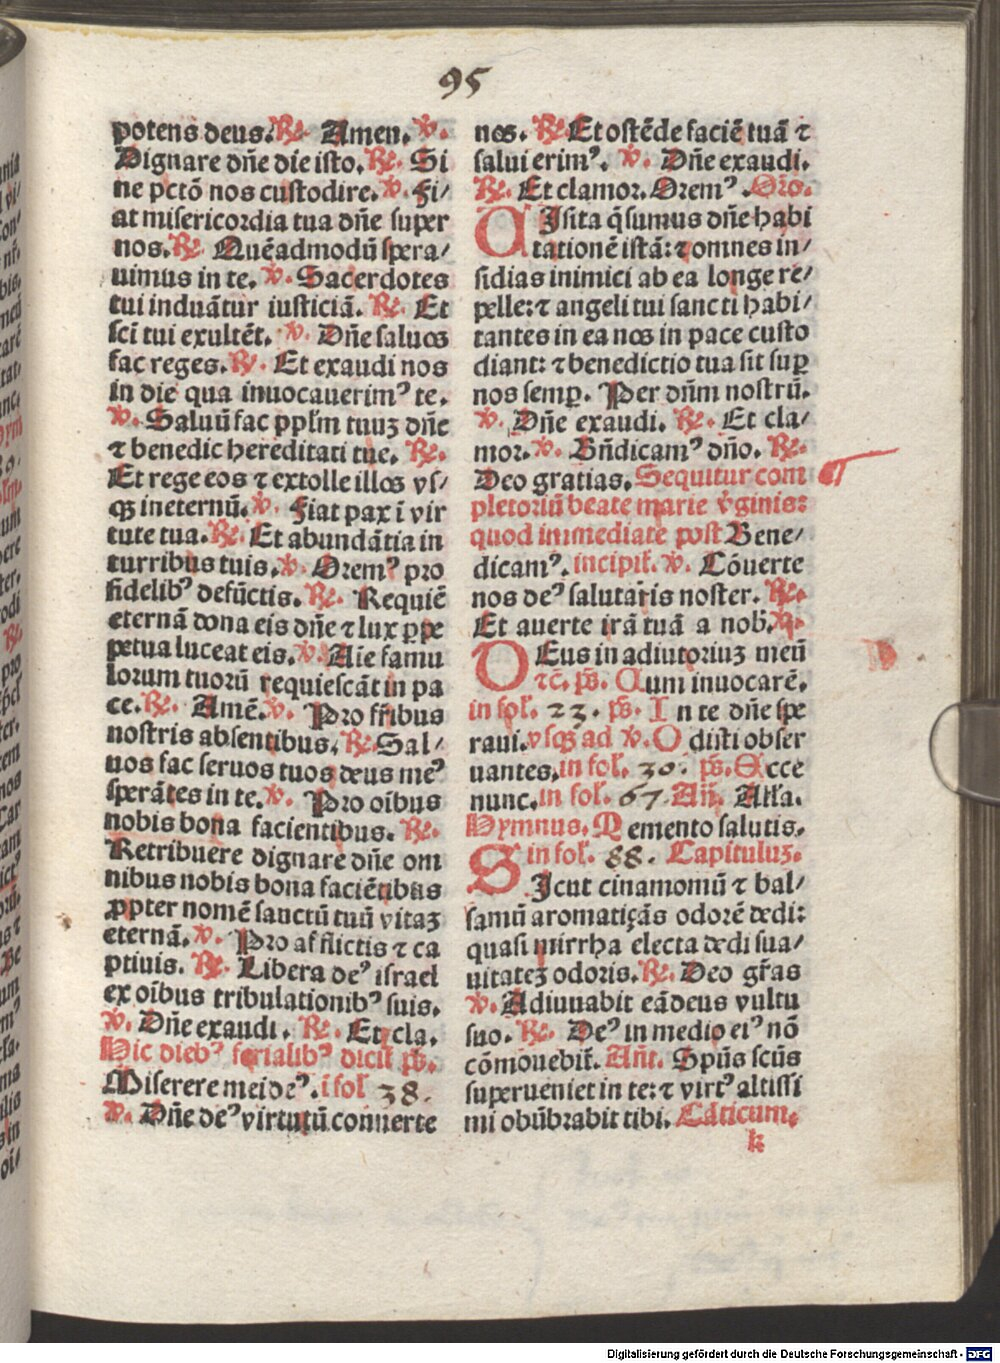 95
potens deus. ℟. Amen. ℣.
Dignare dñe die isto. ℟. Si
ne pctõ nos custodire. ℣. Fi/
at misericordia tua dñe super
nos. ℟. Quẽadmodũ spera/
uimus in te. ℣. Sacerdotes
tui induãtur iusticiã. ℟. Et
sc̃i tui exultẽt. ℣. Dñe saluos
fac reges. ℟. Et exaudi nos
in die qua inuocauerimꝰ te.
℣. Saluũ fac ppl̃m tuuꝫ dñe
⁊ benedic hereditati tue. ℟.
Et rege eos ⁊ extolle illos vs/
qꝫ ineternũ. ℣. Fiat pax ĩ vir
tute tua. ℟. Et abundãtia in
turribus tuis. ℣. Oremꝰ pro
fidelibꝰ defũctis. ℟. Requiẽ
eternã dona eis dñe ⁊ lux ꝑpe
petua luceat eis. ℣. Aĩe famu
lorum tuorũ requiescãt in pa
ce. ℟. Amẽ. ℣. Pro fr̃ibus
nostris absentibus. ℟. Sal/
uos fac seruos tuos deus meꝰ
sperãtes in te. ℣. Pro oĩbus
nobis bona facientibus. ℟.
Retribuere dignare dñe om
nibus nobis bona faciẽtibus
ꝓpter nomẽ sanctũ tuũ vitaꝫ
eternã. ℣. Pro afflictis ⁊ ca
ptiuis. ℟. Libera deꝰ israel
ex oĩbus tribulationibꝰ suis.
℣. Dñe exaudi. ℟. Et cla.
Hic diebꝰ ferialibꝰ dicit̃ ps̃.
Miserere mei deꝰ. ĩ fol 38.
℣. Dñe deꝰ virtutũ conuerte
nos. ℟. Et ostẽde faciẽ tuã ⁊
salui erimꝰ. ℣. Dñe exaudi.
℟. Et clamor. Oremꝰ. Orõ.
UIsita q̃sumus dñe habi
tationẽ istã: ⁊ omnes in/
sidias inimici ab ea longe re/
pelle: ⁊ angeli tui sancti habi/
tantes in ea nos in pace custo
diant: ⁊ benedictio tua sit suꝑ
nos semꝑ. Per dñm nostrũ.
℣. Dñe exaudi. ℟. Et cla/
mor. ℣. Bñdicam̃ꝰ dño. ℟.
Deo gratias. Sequitur com
pletoriũ beate marie ṽginis:
quod immediate post Bene/
dicamꝰ. incipit̃. ℣. Cõuerte
nos deꝰ salutaris noster. ℟.
Et auerte irã tuã a nob̃. ℣.
DEus in adiutoriuꝫ meũ
⁊c̃. ps̃. Cum inuocarẽ.
in fol. 23. ps̃. In te dñe spe
raui. vsqꝫ ad ℣. Odisti obser
uantes. in fol. 30. ps̃. Ecce
nunc. in fol. 67. Añ. All̃a.
Hymnus. Memento salutis.
in fol. 88. Capituluꝫ.
SIcut cinamomũ ⁊ bal/
samũ aromatiçãs odorẽ dedi:
quasi mirrha electa dedi sua/
uitateꝫ odoris. ℟. Deo gr̃as
℣. Adiuuabit eã deus vultu
suo. ℟. Deꝰ in medio eiꝰ nõ
cõmouebit̃. Añt. Spũs scũs
superueniet in te: ⁊ virtꝰ altissi
mi obũbrabit tibi. Cãticum.
k
Digitalisierung gefördert durch die Deutsche Forschungsgemeinschaft - DFG